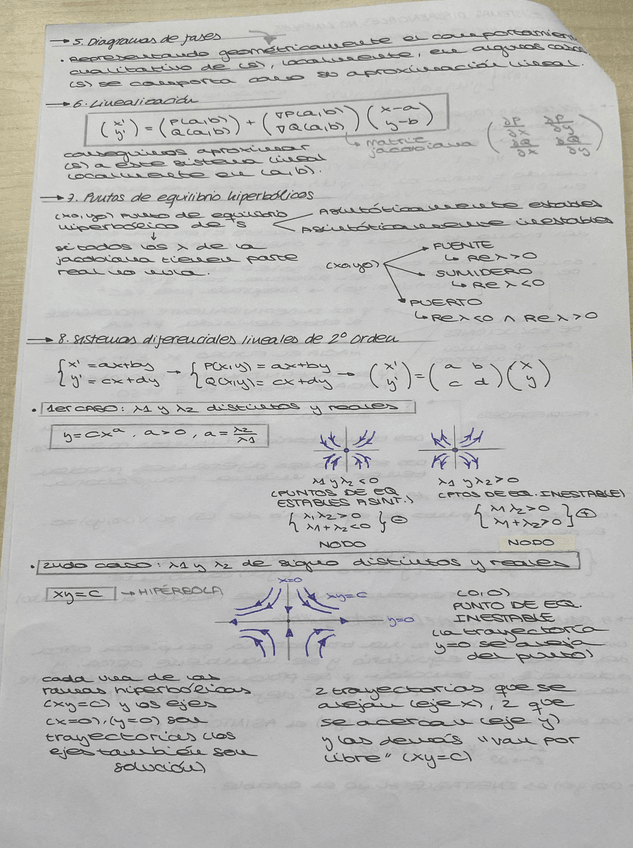 → 5. Diagramas de fases
· Representando geométricamente el comportamiento
cualitativo de (S), localmente, en algunos casos
(S) se comporta como su aproximación lineal.
→ 6. Linealización
(x' y') = (P(a,b) Q(a,b)) + (∇P(a,b) ∇Q(a,b)) (x-a y-b)
↳ matriz jacobiana (∂P/∂x ∂P/∂y ∂Q/∂x ∂Q/∂y)
conseguimos aproximar
(S) a este sistema lineal
localmente en (a,b).
→ 7. Puntos de equilibrio hiperbólicos
(x0,y0) punto de equilibrio
hiperbólico de S
Asintóticamente estables
Asintóticamente inestables
↓
si todos los λ de la
jacobiana tienen parte
real no nula.
(x0,y0)
FUENTE
↳ Re λ > 0
SUMIDERO
↳ Re λ < 0
PUERTO
↳ Re λ < 0 ∧ Re λ > 0
→ 8. Sistemas diferenciales lineales de 2º orden
{ x' = ax+by y' = cx+dy → { P(x,y) = ax+by Q(x,y) = cx+dy → (x' y') = (a b c d) (x y)
· 1er CASO: λ1 y λ2 distintos y reales
y = Cxᵃ, a>0, a = λ2/λ1
λ1 y λ2 < 0
(PUNTOS DE EQ
ESTABLES ASINT.)
{ λ1λ2 > 0 λ1+λ2 < 0 } ⊖
NODO
λ1 y λ2 > 0
(PTOS DE EQ. INESTABLE)
{ λ1λ2 > 0 λ1+λ2 > 0 } ⊕
NODO
· 2ndo caso: λ1 y λ2 de signo distintos y reales
xy = C → HIPÉRBOLA
x=0
xy=C
y=0
(0,0)
PUNTO DE EQ.
INESTABLE
(la trayectoria
y=0 se aleja
del punto)
cada una de las
ramas hiperbólicas
(xy=C) y los ejes
(x=0), (y=0) son
trayectorias (los
ejes también son
solución)
2 trayectorias que se
alejan (eje x), 2 que
se acercan (eje y)
y las demás "van por
libre" (xy=C)